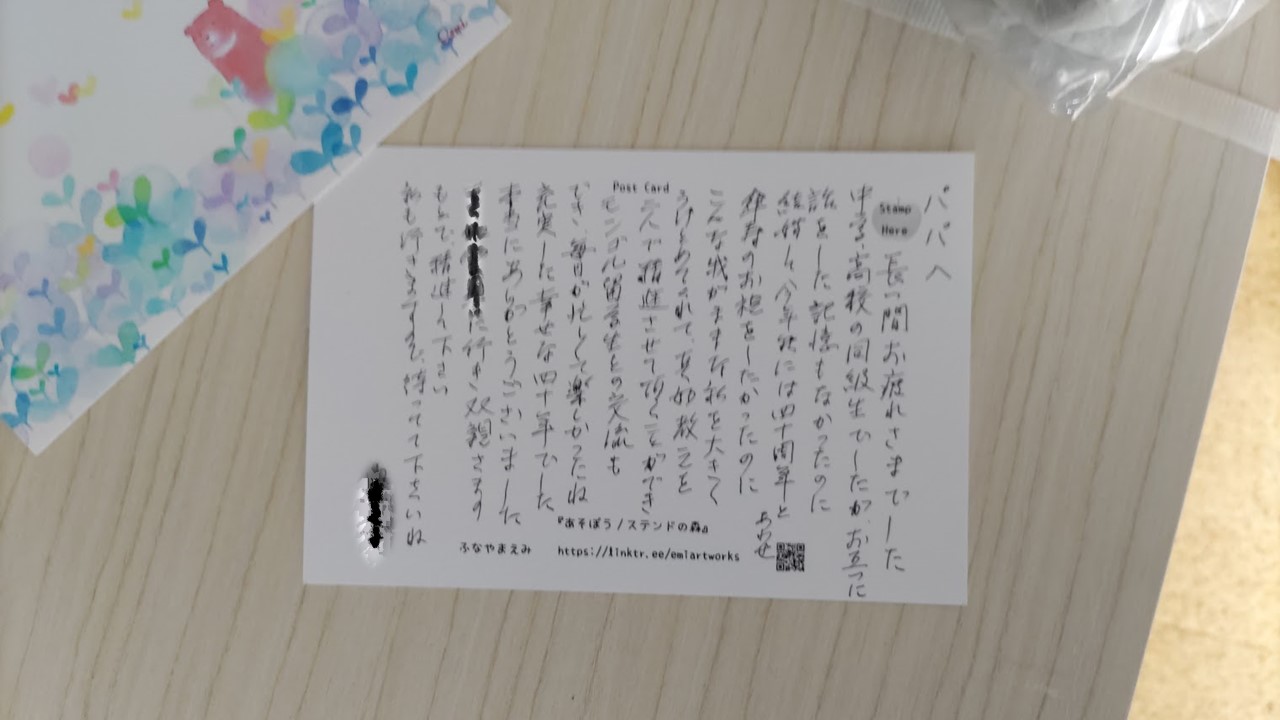 パパへ
長い間お疲れさまでした
中学、高校の同級生でしたが、お互いに
話をした記憶もなかったのに
結婚して今年秋には四十周年と
傘寿のお祝をしたかったのに
あわせ
こんな我がままな私を大きく
うけとめてくれて、真如教えを
二人で精進させて頂くことができ
モンゴル留学生との交流も
でき毎日が忙しくて楽しかったね
充実した幸せな四十年でした
本当にありがとうございました
に行き双親さまの
もとで、精進して下さい
私も行きますまで、待ってて下さいね
Post Card
Stamp
Here
『あそぼう/ステンドの森』
ふなやまえみ
https://linktr.ee/emiartworks
Emi